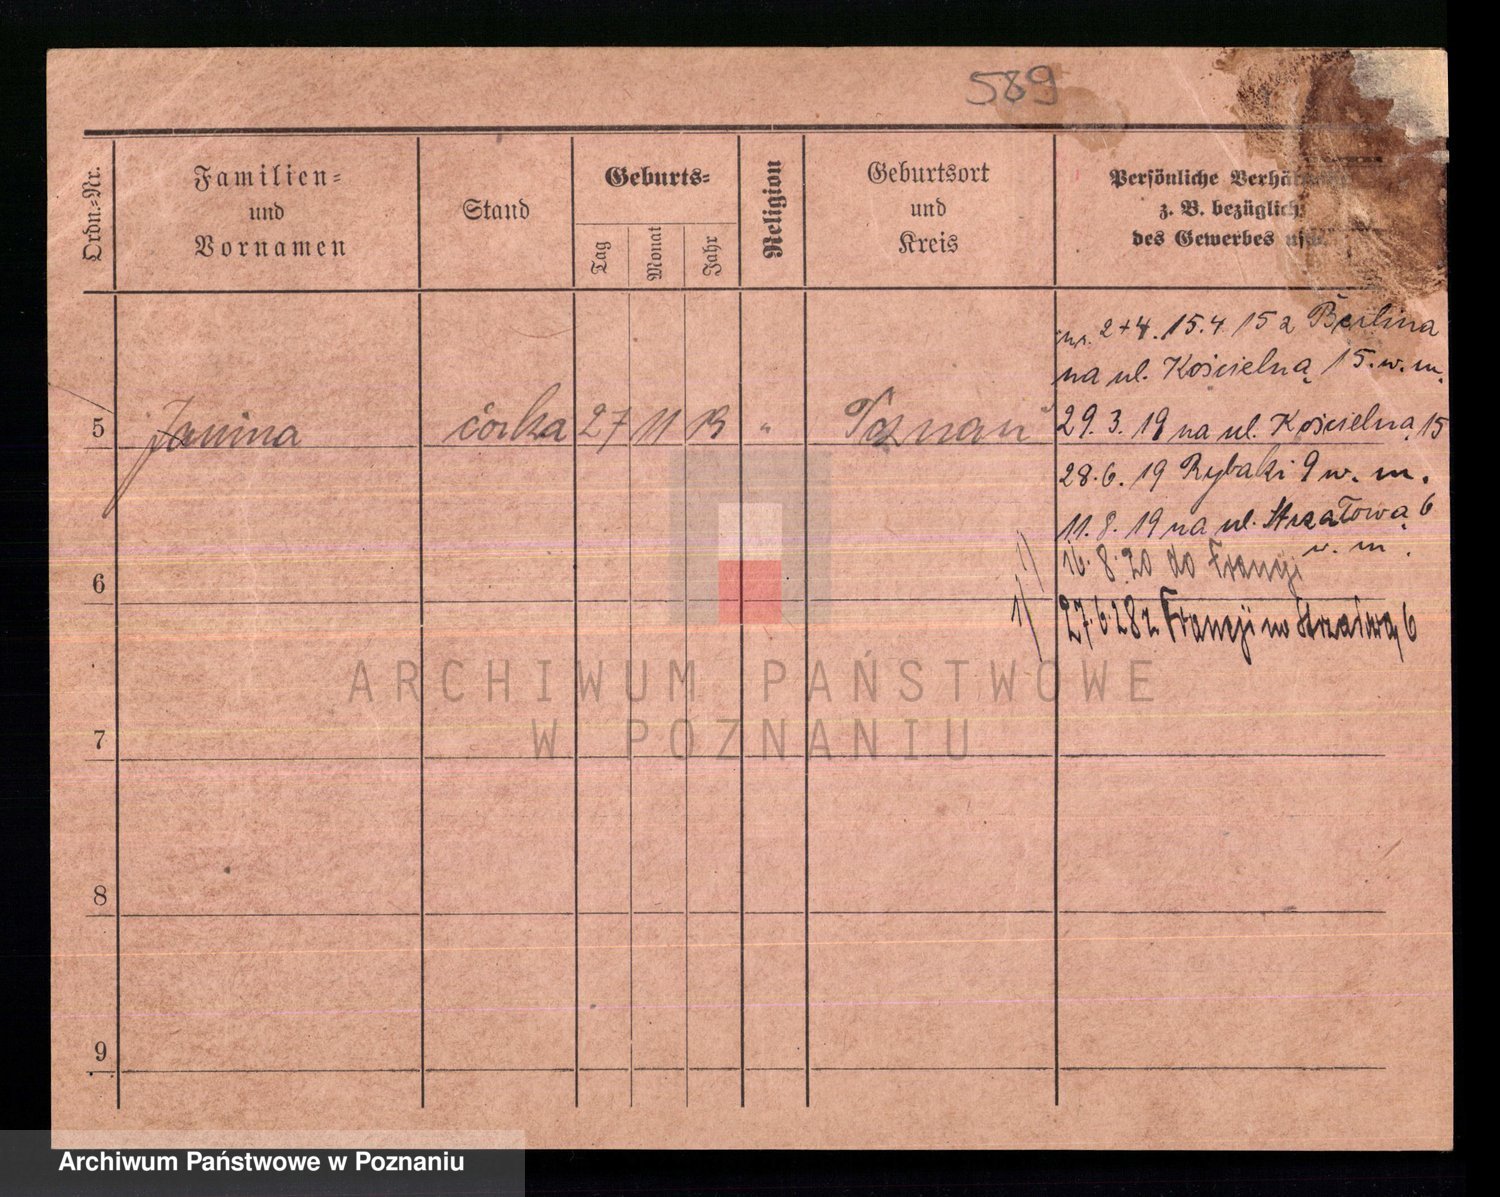 589
Ordn.-Nr.
Familien-
und
Vornamen
Stand
Geburts-
Tag
Monat
Jahr
Religion
Geburtsort
und
Kreis
Persönliche
z. B. bezüglich
des Gewerbes
nr. 2+4. 15.4 15 z Berlina
na ul. Kościelną 15. w. m.
5 Janina córka 27 11 13 " Poznań
29. 3. 19 na ul. Kościelną 15
28. 6. 19 Rybaki 9 w. m.
11. 8. 19 na ul. Strzałową 6
w. m.
1) 16. 8. 20 do Francji
6
1) 27. 6. 28 z Francji na Strzałową 6
7
8
9
ARCHIWUM PAŃSTWOWE
W POZNANIU
Archiwum Państwowe w Poznaniu